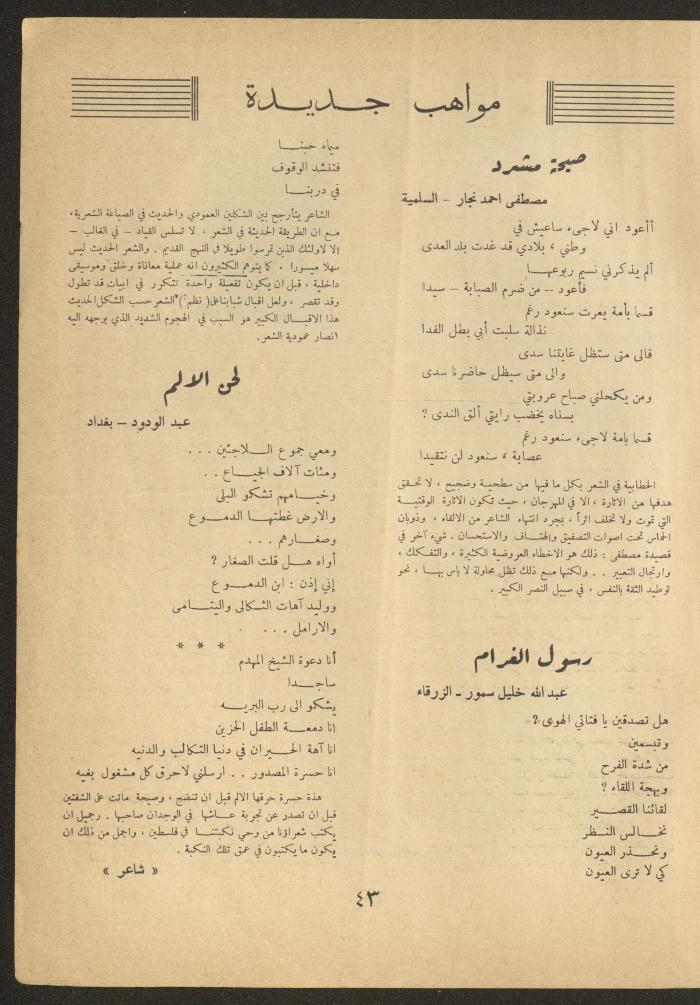 مواهب جـديـدة
صيحة مشرد
مصطفى احمد نجار - السلمية
أأعود اني لاجىء ساعيش في
وطني ، بلادي قد غدت بلد العدى
ألم يذكرني نسيم ربوعهـــا
فأعود – من ضرم الصبابة – سيدا
قسما بأمة يعرت سنعود رغم
نذالة سلبت أبي بطل الفدا
فالى متى ستظل غايتنا سدى
والى متى سيظل حاضرنا سدى
ومن يكحلني صباح عروبتي
بسناه يخضب رايتي ألق الندى ؟
قسما بامة لاجىء سنعود رغم
عصابة ، سنعود لن نتقيدا
الخطابية في الشعر بكل ما فيها من سطحية وضجيج ، لا تحقق
هدفها من الاثارة ، الا في المهرجان ، حيث تكون الاثارة الوقتيــة
التي تموت ولا تخلف اثراً ، بمجرد انتهاء الشاعر من الالقاء ، وذوبان
الحماس تحت اصوات التصفيق والهتــاف والاستحسان . شيء آخر في
قصيدة مصطفى : ذلك هو الاخطاء العروضية الكثيرة ، والتفكك ،
وارتجال التعبير . . ولكنها مـع ذلك تظل محاولة لا باس بهــا ، نحو
توطيد الثقة بالنفس ، في سبيل النصر الكبير .
رسول الغرام
عبد الله خليل سمور – الزرقاء
هل تصدقين يا فتاتي الهوى ؟
وتبسمين
من شدة الفرح
وبهجة اللقاء ؟
لقائنا القصــير
نخــالس النــظر
ونحــذر العيون
كي لا ترى العيون
سماء حبنــا
فتنشد الوقوف
في دربنــا
الشاعر يتأرجح بين الشكلين العمودي والحديث في الصياغة الشعرية،
مـع ان الطريقة الحديثة في الشعر ، لا تسلس القياد – في الغالب –
إلا لاولئك الذين تمرسوا طويلا في النهج القديم . والشعر الحديث ليس
سهلا ميسورا . كما يتوهم الكثيرون انه عملية معاناة وخلق وموسيقى
داخلية ، قبل ان يكون تفعيلة واحدة تتكرر في ابيات قد تطول
وقد تقصر ، ولعل اقبال شبابنا على (نظم) الشعر حسب الشكل الحديث
هذا الاقبــال الكبير هو السبب في الهجوم الشديد الذي يوجهه اليه
انصار عمودية الشعر.
لحن الالم
عبد الودود – بغداد
ومعي جموع الــلاجئين . . .
ومئات آلاف الجيــاع . .
وخيــامهم تشكو البلى
والارض غطتهــا الدمــوع
وصغــارهم . . .
أواه هــل قلت الصغار ؟
إني إذن : ابن الدمــوع
ووليد آهات الثــكالى واليتــامى
والارامل . . .
* * *
أنا دعوة الشيخ المهدم
ساجــدا
يشكو الى رب البريــه
انا دمعــة الطفل الحزين
انا آهة الحــيران في دنيا التكالب والدنيه
انا حسرة المصدور . . ارسلني لاحرق كل مشغول بغيه
هذه حسرة حرقها الالم قبل ان تنضج ، وصيحة ماتت على الشفتين
قبل ان تصدر عن تجربة عــاشها في الوجدان صاحبها . وجميل ان
يكتب شعراؤنا من وحي نكبتنــا في فلسطين ، واجمل من ذلك ان
يكون ما يكتبون في عمق تلك النكبة .
« شاعر »
٤٣